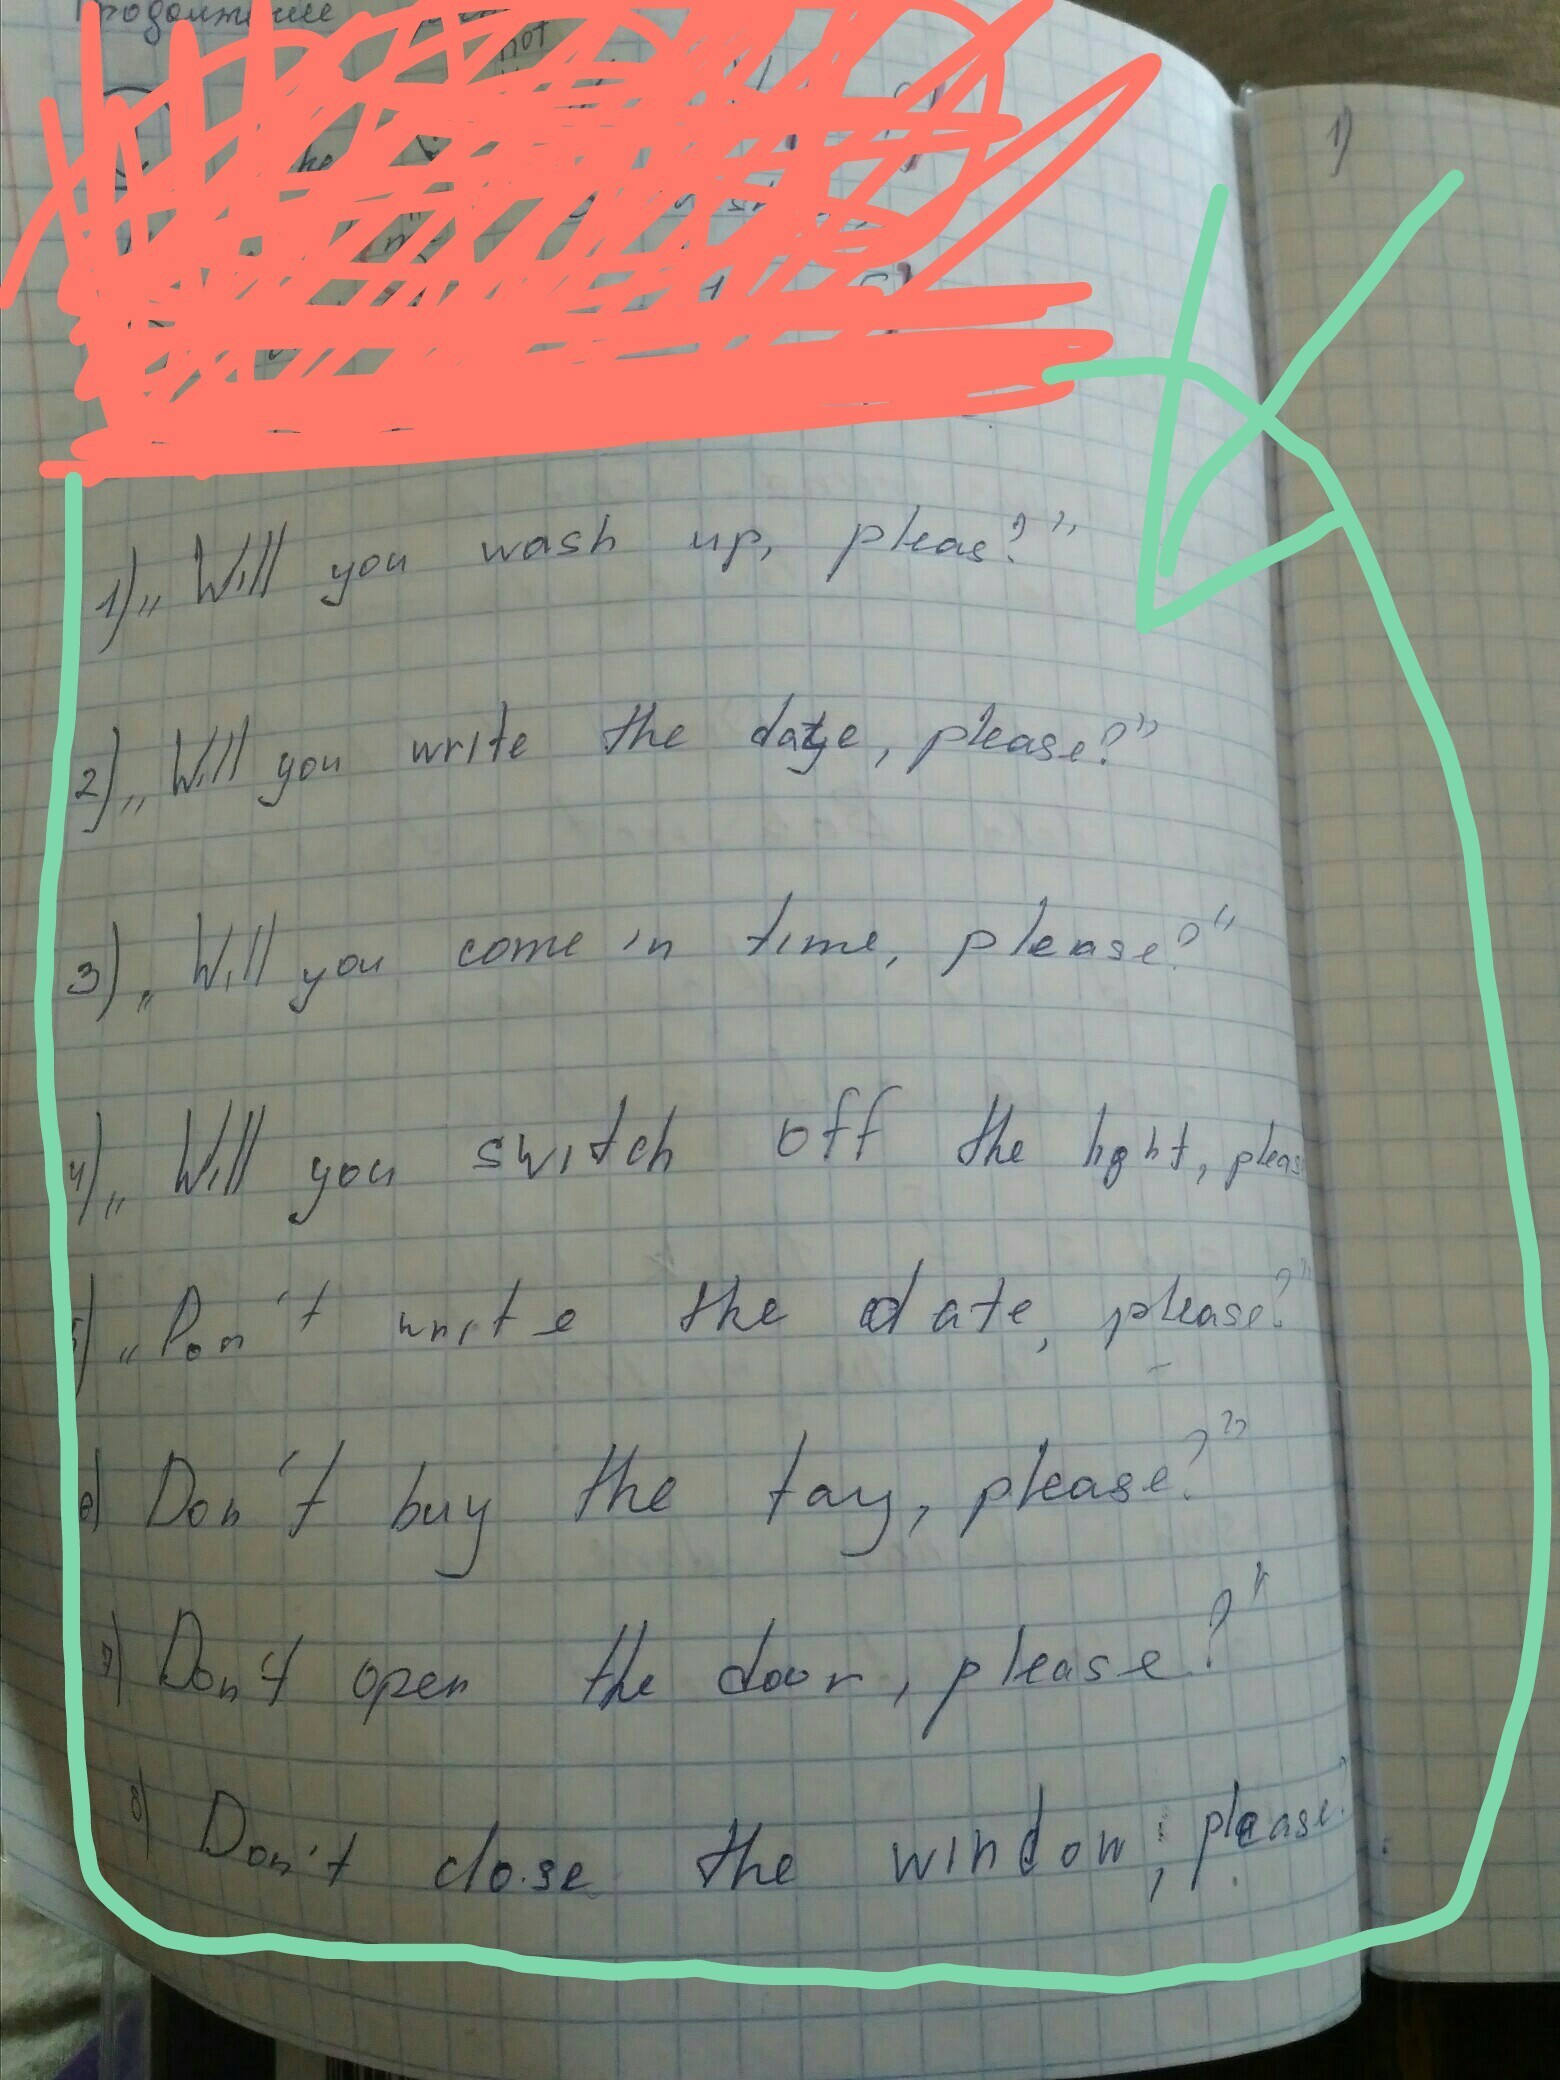 Продолжение
not
he
1)
1) „Will you wash up, pleas?”
2) „Will you write the date, please?”
3) „Will you come in time, please?“
4) „Will you switch off the light, pleas
5) „Don't write the date, please?”
6) Don't buy the tay, please?”
7) Don't open the door, please?“
8) Don't close the window, please?